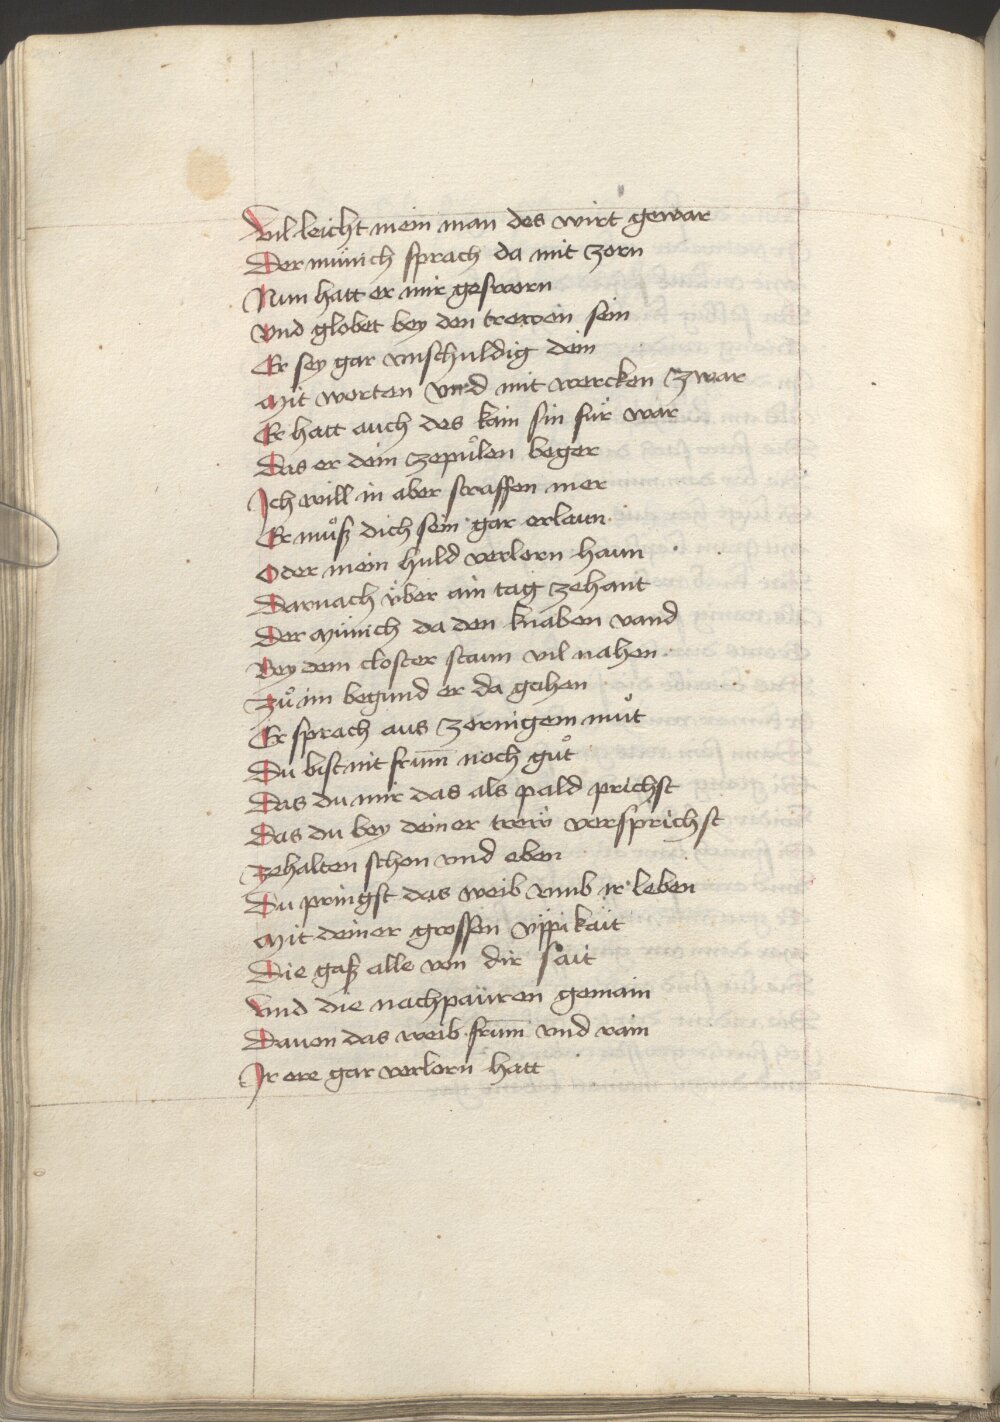 Vil leicht mein man des wirt gewar
Der münich sprach da mit zorn
Nun hatt er mir gesworn
Vnd globet bey den trewen sein
Er sey gar vnschuldig dein
Mit worten vnd mit wercken zwar
Er hatt auch des kain sin für war
Das er dein ze půlen beger
Ich will in aber straffen mer
Er můsz dich sein gar erlaun
Oder mein huld verlorn haun
Darnach über ain tag zehant
Der münich da den knaben vand
Bey dem closter staun vil nahen
Zů im begund er da gahen
Er sprach aus zornigem můt
Du bist nit frum̄ noch gůt
Das du mir das als pald prichst
Das du bey deiner trew versprichst
Zehalten schon vnd eben
Du pringst das weib vmb ir leben
Mit deiner grossen üppikait
Die gasz alle von dir sait
Vnd die nachpauren gemain
Dauon das weib frum̄ vnd rain
Ir ere gar verlorn hatt